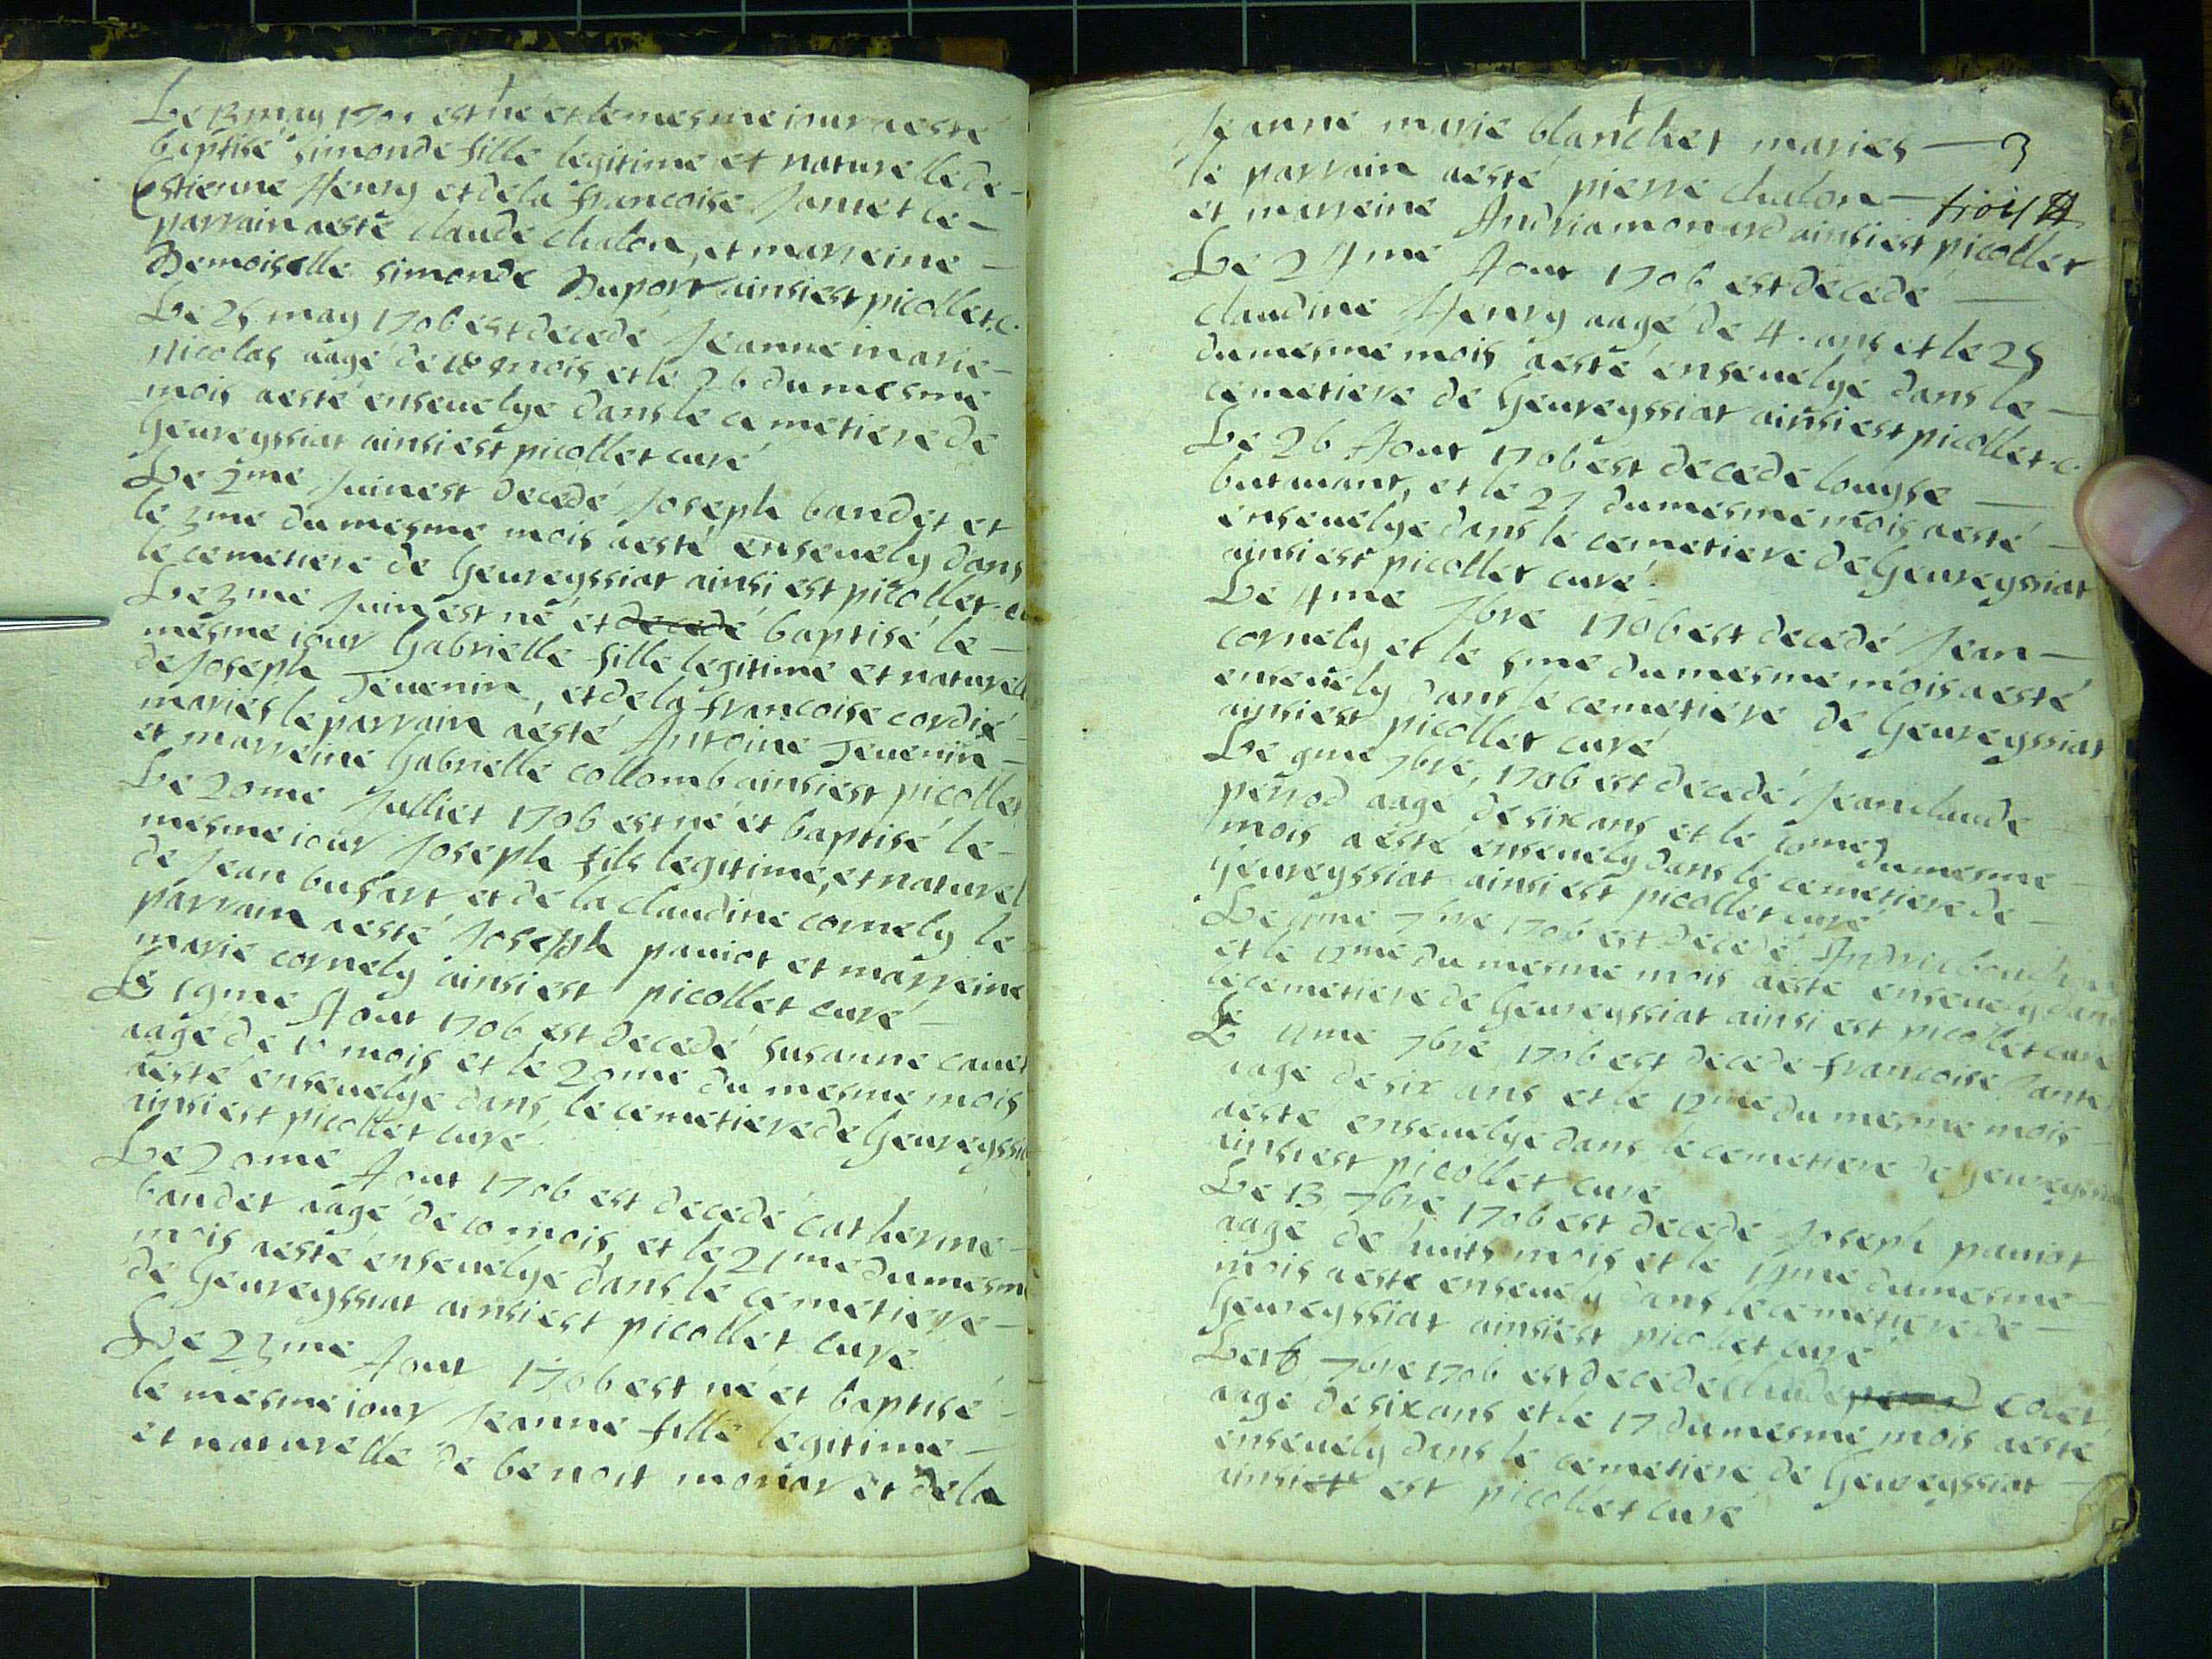 Le 13 may 170 est né et le mesme iour aesté
baptisé simonde fille legitime et naturelle de
Estienne Henry et de la francoise Jamet le
parrain aesté claude chalon, et marreine
Demoiselle simonde Duport ainsi est picollet c.
Le 25 may 1706 est decedé Jeanne marie
nicolas aagé de 18 mois et le 26 du mesme
mois aesté enseuelye dans le cemetiere de
Geureyssiat ainsi est picollet curé
Le 2me Juin est decedé Joseph bandet et
le 3me du mesme mois aesté enseuely dans
le cemetiere de Geureyssiat ainsi est picollet cu
Le 3me Juin est né et decedé baptisé le
mesme iour Gabrielle fille legitime et naturell
de Joseph Teuenin, et de la francoise cordié
maries le parrain aesté Antoine Teuenin
et marreine Gabrielle collomb ainsi est picollet
Le 20me Julliet 1706 est né et baptisé le
mesme iour Joseph fils legitime, et naturel
de Jean busart et de la claudine cornely le
parrain aesté Joseph pauiot et marreine
marie cornely ainsi est picollet curé
Le 19me Aout 1706 est decedé susanne cauet
aagé de 10 mois et le 20me du mesme mois
aesté enseuelye dans le cemetiere de Geureyssia
ainsi est picollet curé
Le 20me Aout 1706 est decedé catherine
bandet aagé de 10 mois, et le 21me du mesme
mois aesté enseuelye dans le cemetiere
de Geureyssiat ainsi est picollet curé
Le 23me Aout 1706 est né et baptisé
le mesme iour Jeanne fille legitime
et naturelle de benoit monar et de la
Jeanne marie blanchet maries 3
le parrain aesté pierre chalon trois
et marreine Andria monard ainsi est picollet
Le 24me Aout 1706 est decedé
claudine Henry aagé de 4. ans et le 25
du mesme mois aesté enseuelye dans le
cemetiere de Geureyssiat ainsi est picollet c.
Le 26 Aout 1706 est decedé louyse
butmant, et le 27 du mesme mois aesté
enseuelye dans le cemetiere de Geureyssiat
ainsi est picollet curé.
Le 4me 7bre 1706 est decedé Jean
cornely et le 5me du mesme mois aesté
enseuely dans le cemetiere de Geureyssiat
ainsi est picollet curé
Le 9me 7bre, 1706 est decedé Jean claude
perrod aagé de six ans et le 10me du mesme
mois aesté enseuely dans le cemetiere de
Geureyssiat ainsi est picollet curé
Le 11me 7bre 1706 est decedé
et le 12me du mesme mois aesté enseuely dans
le cemetiere de Geureyssiat ainsi est picollet curé
Le 11me 7bre 1706 est decedé francoise
aagé de six ans et le 12me du mesme mois
aesté enseuelye dans le cemetiere de Geureyssia
ainsi est picollet curé
Le 13 7bre 1706 est decedé Joseph pauiot
aagé de huits mois et le 14me du mesme
mois aesté enseuely dans le cemetiere de
Geureyssiat ainsi est picollet curé
Le 16 7bre 1706 est decedé claude
aagé de six ans et le 17 du mesme mois aesté
enseuely dans le cemetiere de Geureyssiat
ainsi et est picollet curé